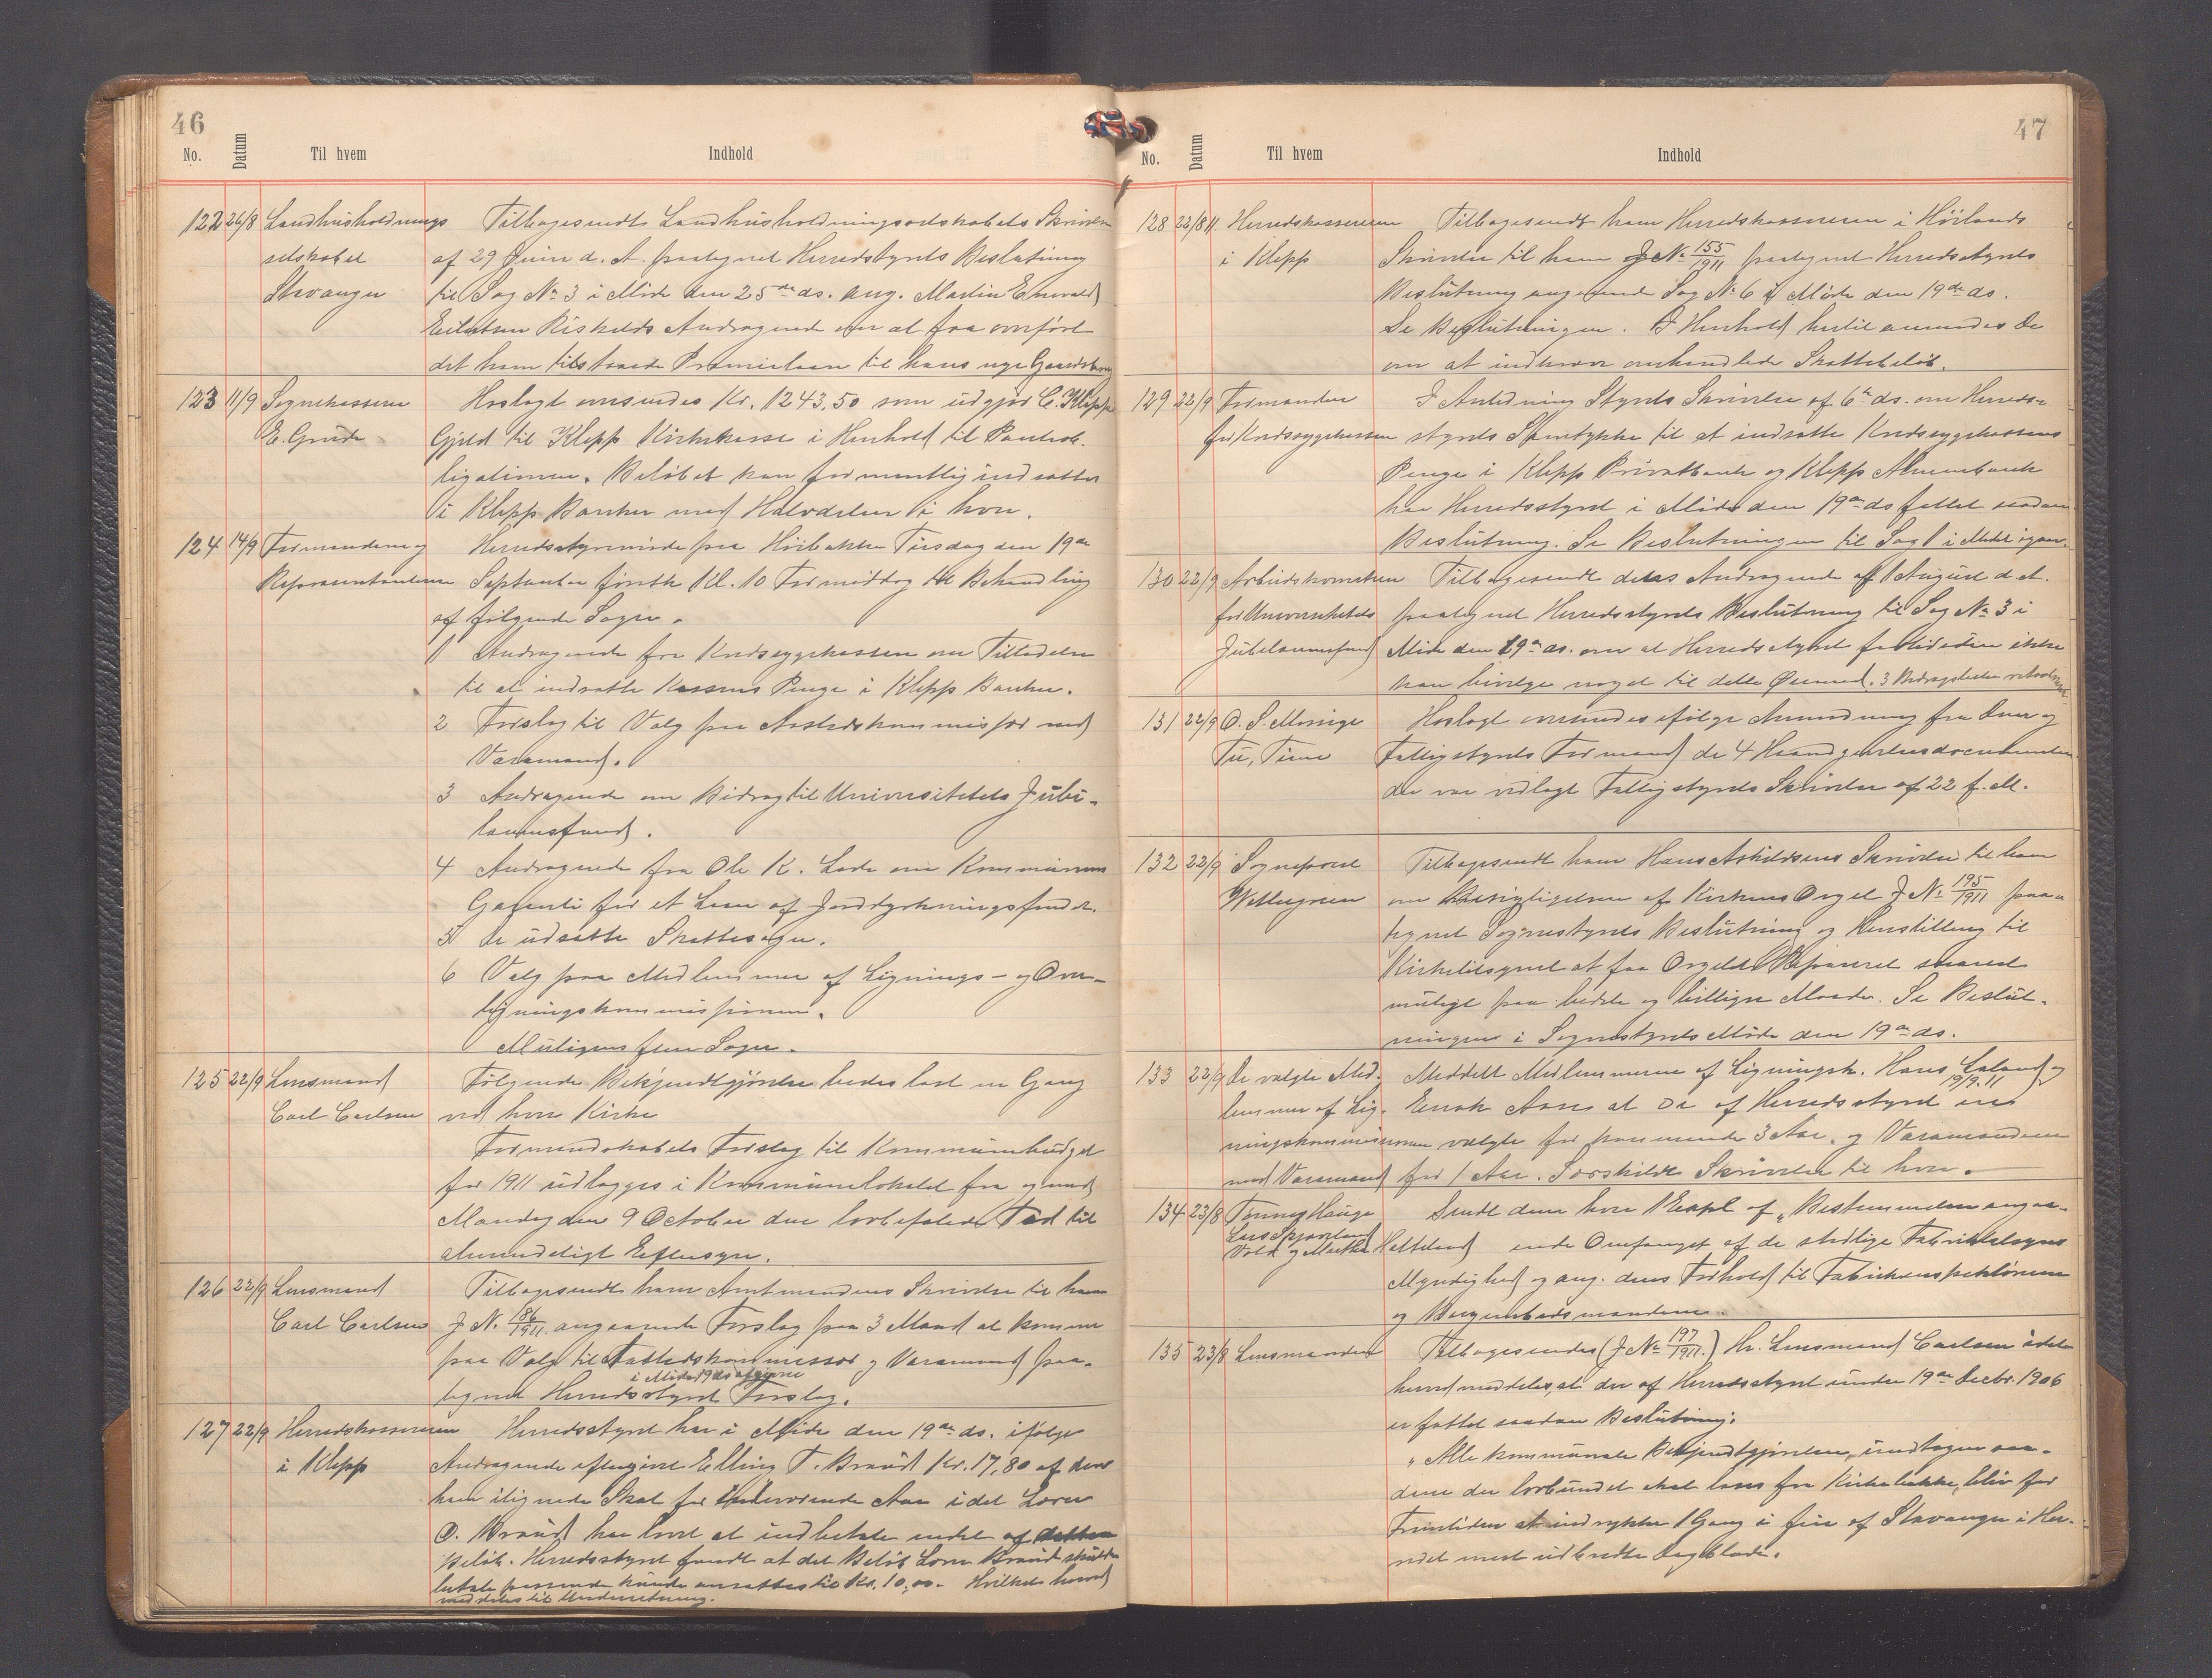 46
No. Datum Til hvem Indhold
122 26/8 Landhusholdnings Tilbagesendt Landhusholdningsselskabets Skrivelse
selskabet af 29 Juni d. A. paategnet Herredstyrets Beslutning
Stavanger til Sag No 3 i Møde den 25de ds. ang. Martin Enevald
Eilertsen Andragende om at faa overført
det ham tilstaaede Præmielaan til hans nye Gaardsbrug
123 11/9 Sognekasserer Hoslagt oversendes Kr. 1243,50 som udgjør C. Klepps
E. Grude Gjeld til Klepp Kirkekasse i Henhold til Pantob-
ligationen. Beløbet kan formentlig indsættes
i Klepps Banker med Halvdelen i hver.
124 14/9 Formændene og Herredsstyremøde paa Høibakke Tirsdag den 19de
Repræsentanterne September førstk. Kl. 10 Formiddag til Behandling
af følgende Sager.
1 Andragende fra Kredssygekassen om Tilladelse
til at indsætte Kassens Penge i Klepp Banker.
2 Forslag til Valg paa Aastedskommissær med
Varamand.
3 Andragende om Bidrag til Universitetets Jubi-
læumsfund.
4 Andragende fra Ole K. Lode om Kommunens
Garanti for et Laan af Jorddyrkningsfondet.
5 De udsatte Skattesager.
6 Valg paa Medlemmer af Lignings- og Over-
ligningskommissionen.
Muligens flere Sager.
125 22/9 Lensmand Følgende Bekjendtgjørelse bedes læst en Gang
Carl Carlsen ved hver Kirke
Formandskabets Forslag til Kommunebudget
for 1911 udlægges i Kommunelokalet fra og med
Mandag den 9 October den lovbefalede Tid til
almindeligt Eftersyn.
126 22/9 Lensmand Tilbagesendt ham Amtmandens Skrivelse til ham
Carl Carlsen J. N. 186/1911 angaaende Forslag paa 3 Mænd at komme
paa Valg til Aastedskommissær og Varamand paa-
i Møde 19 ds afgivne
tegnet Herredsstyret Forslag.
127 22/9 Herredskassereren Herredsstyret har i Møde den 19de ds. ifølge
i Klepp Andragende eftergivet Elling T. Braud Kr. 17,80 af den
ham ilignede Skat for indeværende Aar idet Loren
O. Braud har lovet at indbetale endel af dette
Beløb. Herredsstyret fandt at det Beløb Loren Braud skulde
betale passende kunde ansættes til Kr. 10,00. Hvilket herved
meddeles til Underretning.
47
No. Datum Til hvem Indhold
128 22/8 11. Herredskassereren Tilbagesendt ham Herredskassereren i Høilands
i Klepp Skrivelse til ham J No 155/1911 paategnet Herredsstyrets
Beslutning angaaende Sag No 6 i Møde den 19de ds.
Se Beslutningen. I Henhold hertil anmodes De
om at indkræve omhandlede Skattebeløb.
129 22/9 Formanden I Anledning Styrets Skrivelse af 6te ds. om Herreds-
for Kredssygekassen styrets Samtykke til at indsætte Kredssygekassens
Penge i Klepp Privatbank og Klepp Almenbank
har Herredsstyret i Møde den 19de ds fattet saadan
Beslutning. Se Beslutningen til Sag 1 i Mødet igaar.
130 22/9 Arbeidskomiteen Tilbagesendt dens Andragende af 1 August d. A.
for Universitetets paategnet Herredsstyrets Beslutning til Sag No 3 i
Jubilæumsfund Møde den 19de ds. om at Herredsstyret for Tiden ikke
kan bevilge noget til dette Øiemed. 3 Bidragslister
131 22/9 O. S. Mossige Hoslagt oversendes ifølge Anmodning fra Dem og
Tu, Time Fattigstyrets Formand de 4
der var vedlagt Fattigstyrets Skrivelse af 22 f. M.
132 22/9 Sogneprest Tilbagesendt ham Hans Askildsens Skrivelse til ham
om Besigtigelsen af Kirkens Orgel J No 195/1911 paa-
tegnet Sognestyrets Beslutning og Henstilling til
Kirketilsynet at faa Orgelet Repareret snarest
muligt paa bedste og billigste Maade. Se Beslut-
ningen i Sognestyrets Møde den 19de ds.
133 22/9 De valgte Med- Meddelt Medlemmerne af Ligningsk. Hans Laland og
19/9.11
lemmer af Lig- Enok Aase at De af Herredsstyret er
ningskommissionen valgte for kommende 3 Aar. og Varamændene
med Varamand for 1 Aar. Særskildt Skrivelse til hver.
134 23/8 Tønnes Hauge Sendt dem hver 1 Expl. af "Bestemmelser angaa-
Lars Skjæveland
Vold og Marthe Hetteland ende Omfanget af de stedlige Fabriktilsyns
Myndighed og ang. dens Forhold til Fabrikinspektørerne
og
135 23/8 Lensmanden Tilbagesendes (J No 197/1911) Hr. Lensmand Carlsen idet
herved meddeles, at der af Herredsstyret under 19de Decbr. 1906
er fattet saadan Beslutning:
"Alle kommunale Bekjendtgjørelser, undtagen saa-
danne der lovbundet skal læses fra Kirkebakke, blir for
Fremtiden at indrykke 1 Gang i fire af Stavanger i Her-
redet mest udbredte Dagblade.